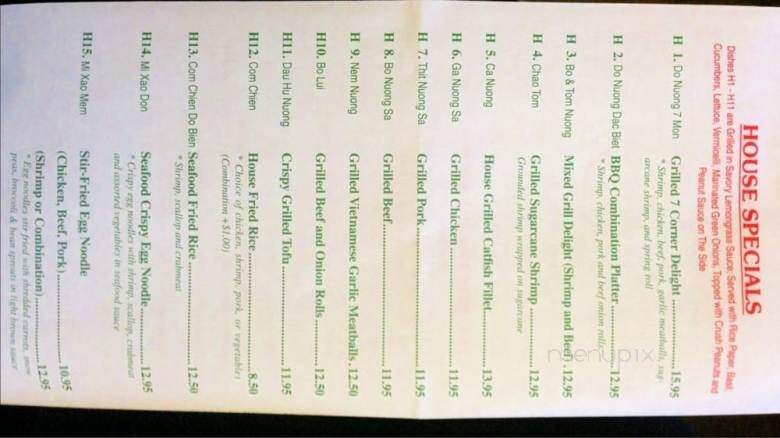 HOUSE SPECIALS
Dishes H1 - H11 are Grilled in Savory Lemongrass Sauce; Served with Rice Paper, Basil,
Cucumbers, Lettuce, Vermicelli, Marinated Green Onions, Topped with Crush Peanuts and
Peanut Sauce on The Side
H 1. Do Nuong 7 Mon Grilled 7 Corner Delight 15.95
* Shrimp, chicken, beef, pork, garlic meatballs, sug-
arcane shrimp, and spring roll
H 2. Do Nuong Dac Biet BBQ Combination Platter 12.95
* Shrimp, chicken, pork and beef onion rolls
H 3. Bo & Tom Nuong Mixed Grill Delight (Shrimp and Beef) . 12.95
H 4. Chao Tom Grilled Sugarcane Shrimp 12.95
Grounded shrimp wrapped on sugarcane
H 5. Ca Nuong House Grilled Catfish Fillet 13.95
H 6. Ga Nuong Sa Grilled Chicken 11.95
H 7. Thit Nuong Sa Grilled Pork 11.95
H 8. Bo Nuong Sa Grilled Beef 11.95
H 9. Nem Nuong Grilled Vietnamese Garlic Meatballs . 12.50
H10. Bo Lui Grilled Beef and Onion Rolls 12.50
H11. Dau Hu Nuong Crispy Grilled Tofu 11.95
H12. Com Chien House Fried Rice 8.50
* Choice of chicken, shrimp, pork, or vegetables
(Combination +$1.00)
H13. Com Chien Do Bien Seafood Fried Rice 12.50
* Shrimp, scallop and crabmeat
H14. Mi Xao Don Seafood Crispy Egg Noodle 12.95
* Crispy egg noodles with shrimp, scallop, crabmeat
and assorted vegetables in seafood sauce
H15. Mi Xao Mem Stir-Fried Egg Noodle
(Chicken, Beef, Pork) 10.95
(Shrimp or Combination) 12.95
* Egg noodles stir fried with shredded carrots, snow
peas, broccoli & bean sprouts in light brown sauce
menupix